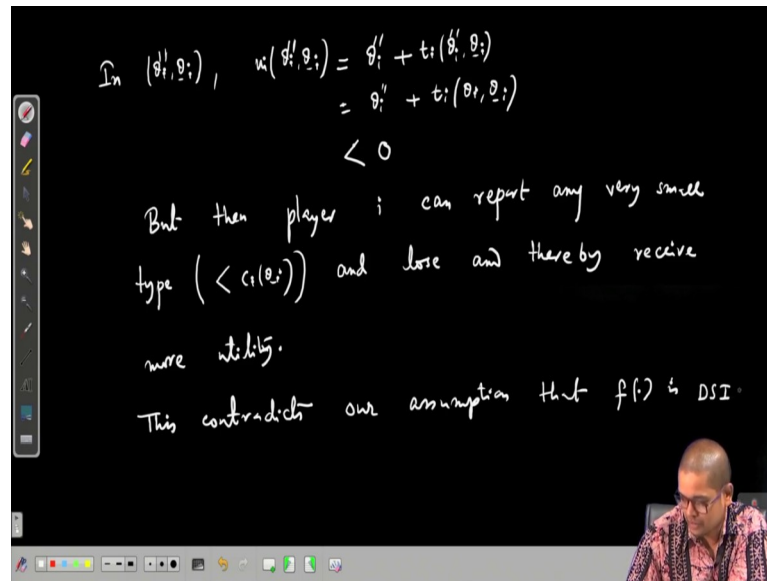 In (θi'', θ_i), ui(θi'', θ_i) = θi'' + ti(θi'', θ_i)
= θi'' + ti(θi, θ_i)
< 0
But then player i can report any very small
type (< ci(θ_i)) and lose and thereby receive
more utility.
This contradicts our assumption that f(.) is DSI